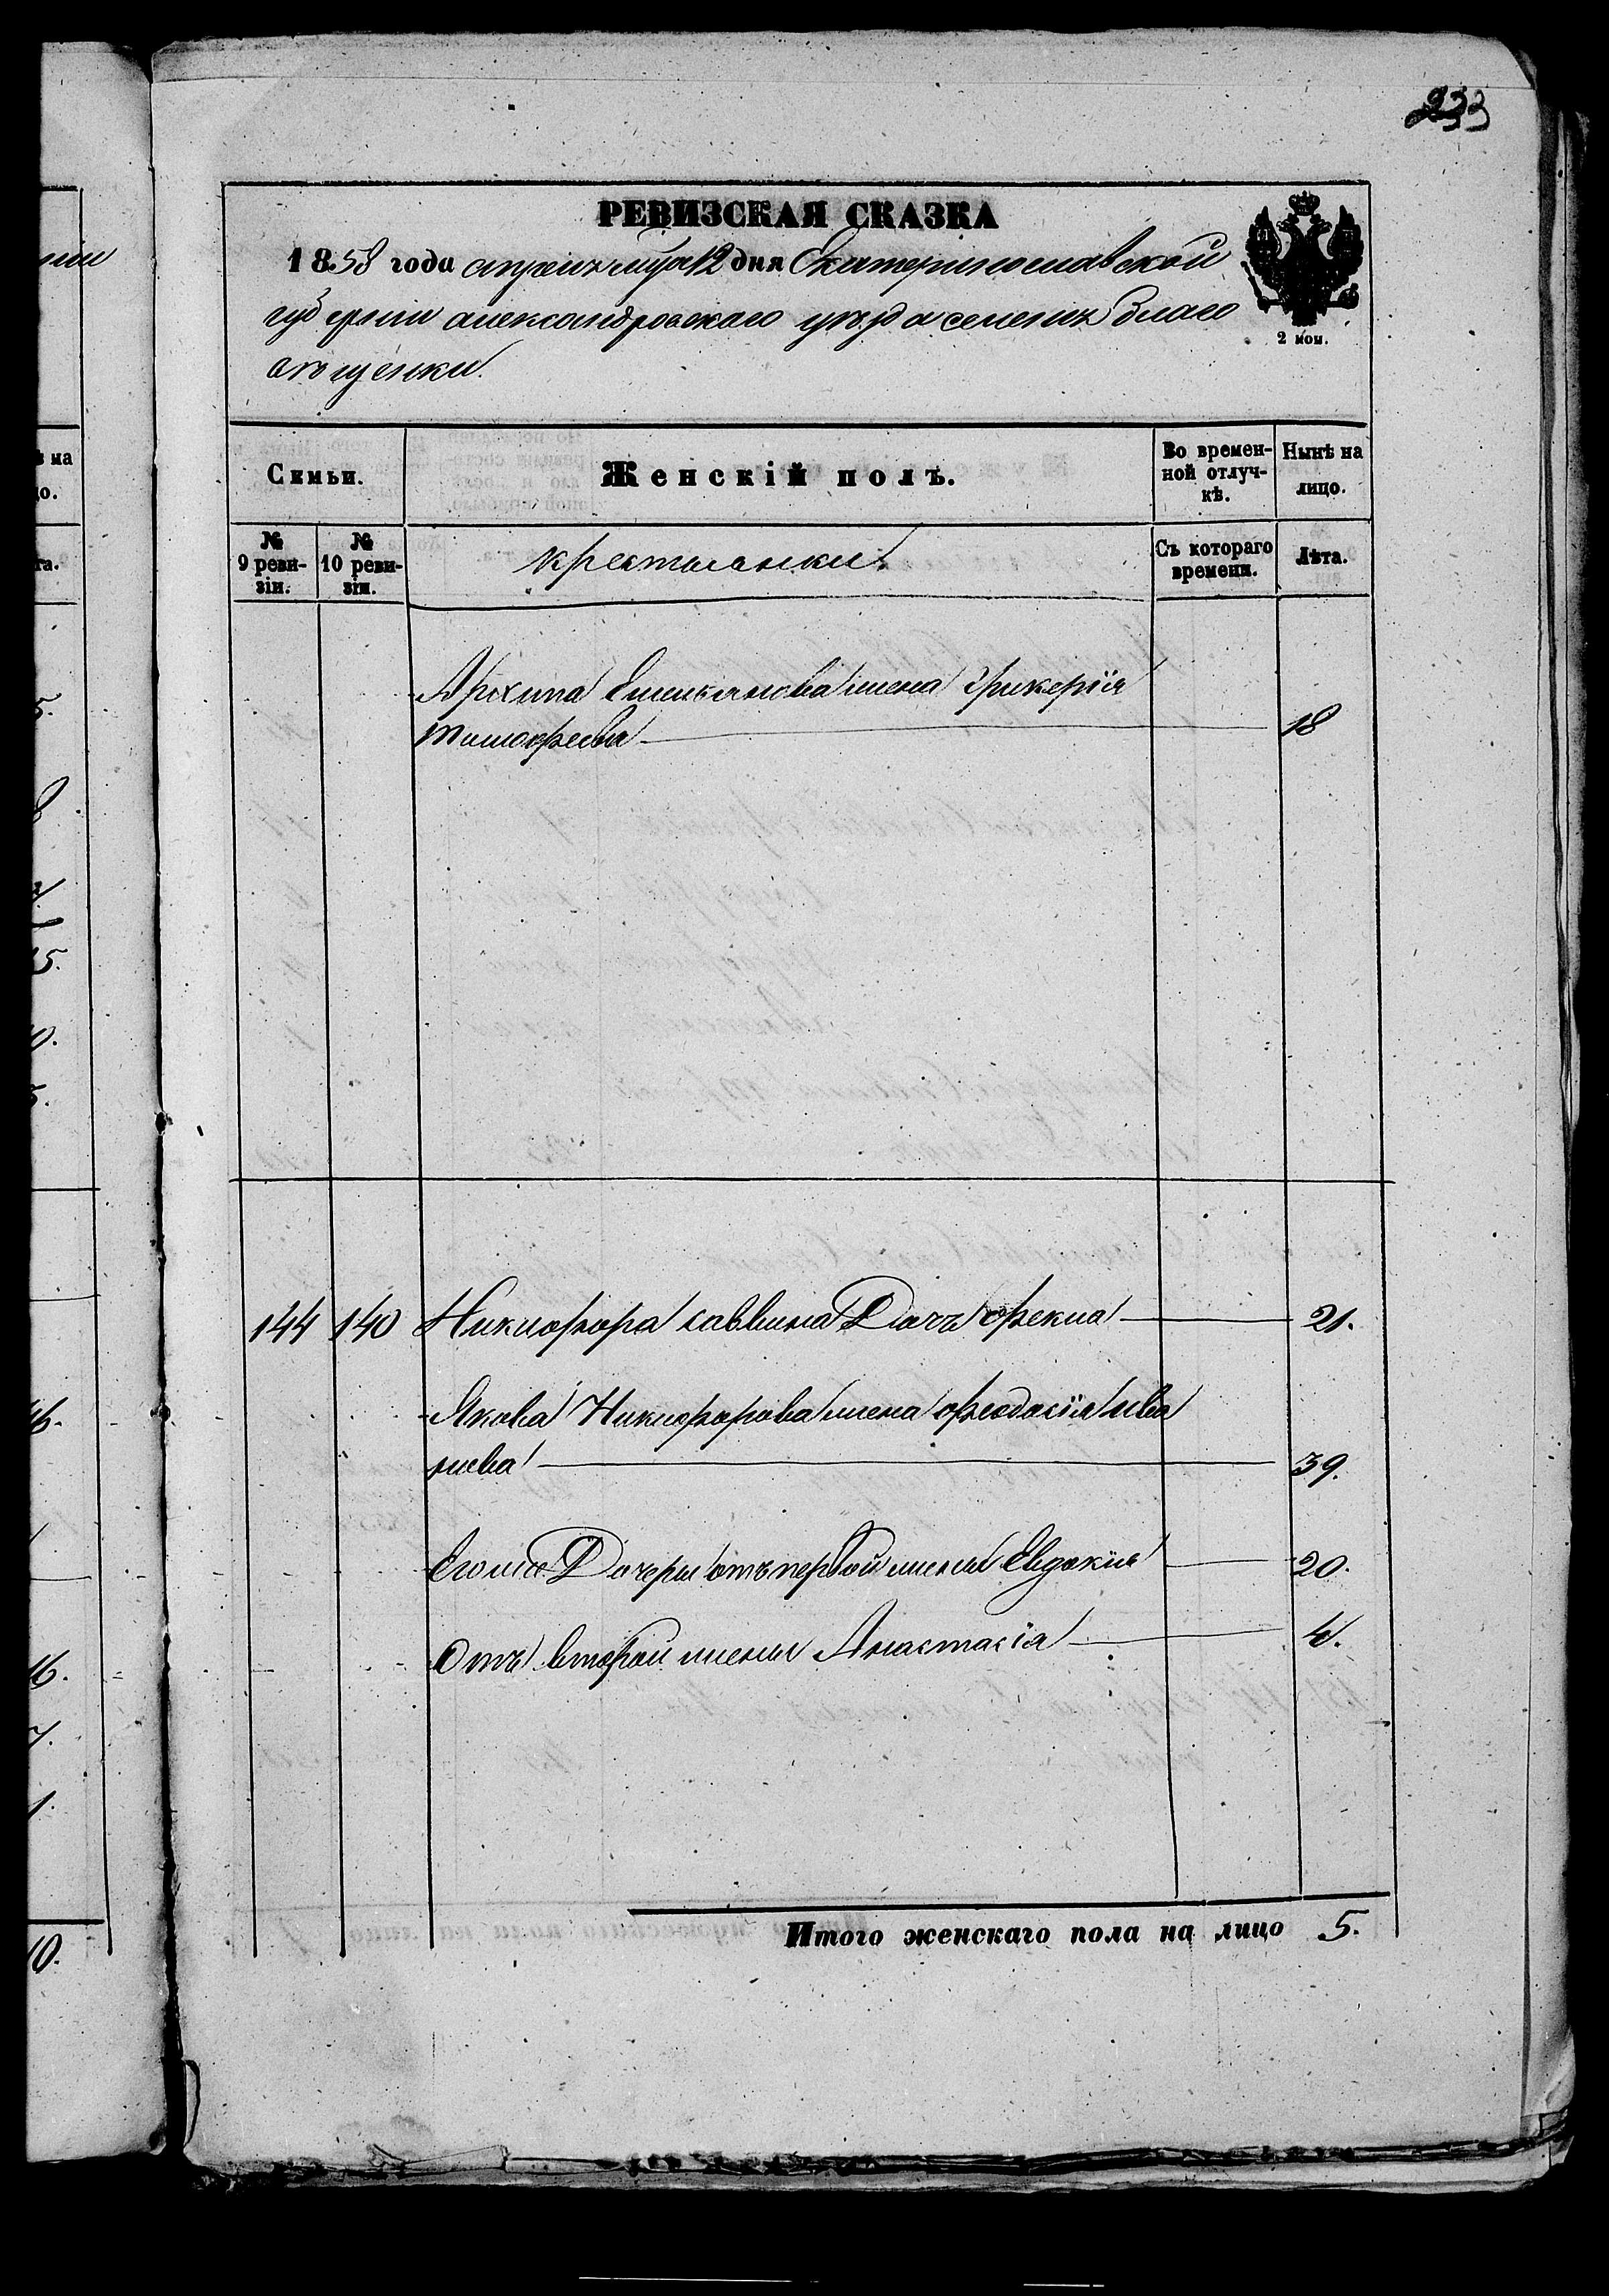 233
РЕВИЗСКАЯ СКАЗКА
1858 года апреля мца 12 дня Екатеринославской
губернии александровского уезда селения Благо
вещенки.
2 коп.
Семьи.
Женскій полъ.
Во времен-
ной отлуч-
кѣ.
Нынѣ на
лицо.
№
9 реви-
зіи.
№
10 реви-
зіи.
крестьянки.
Съ котораго
времени.
Лѣта.
Архипа Емельянова жена Гликерія
Тимофеева 18
144 140 Никифора Саввина Дочь Фекла 21.
Якова Никифорова жена Феодосія Ива
нова 39.
Его же Дочери отъ первой жены Евдокія 20.
Отъ второй жены Анастасія 4.
Итого женскаго пола на лицо 5.